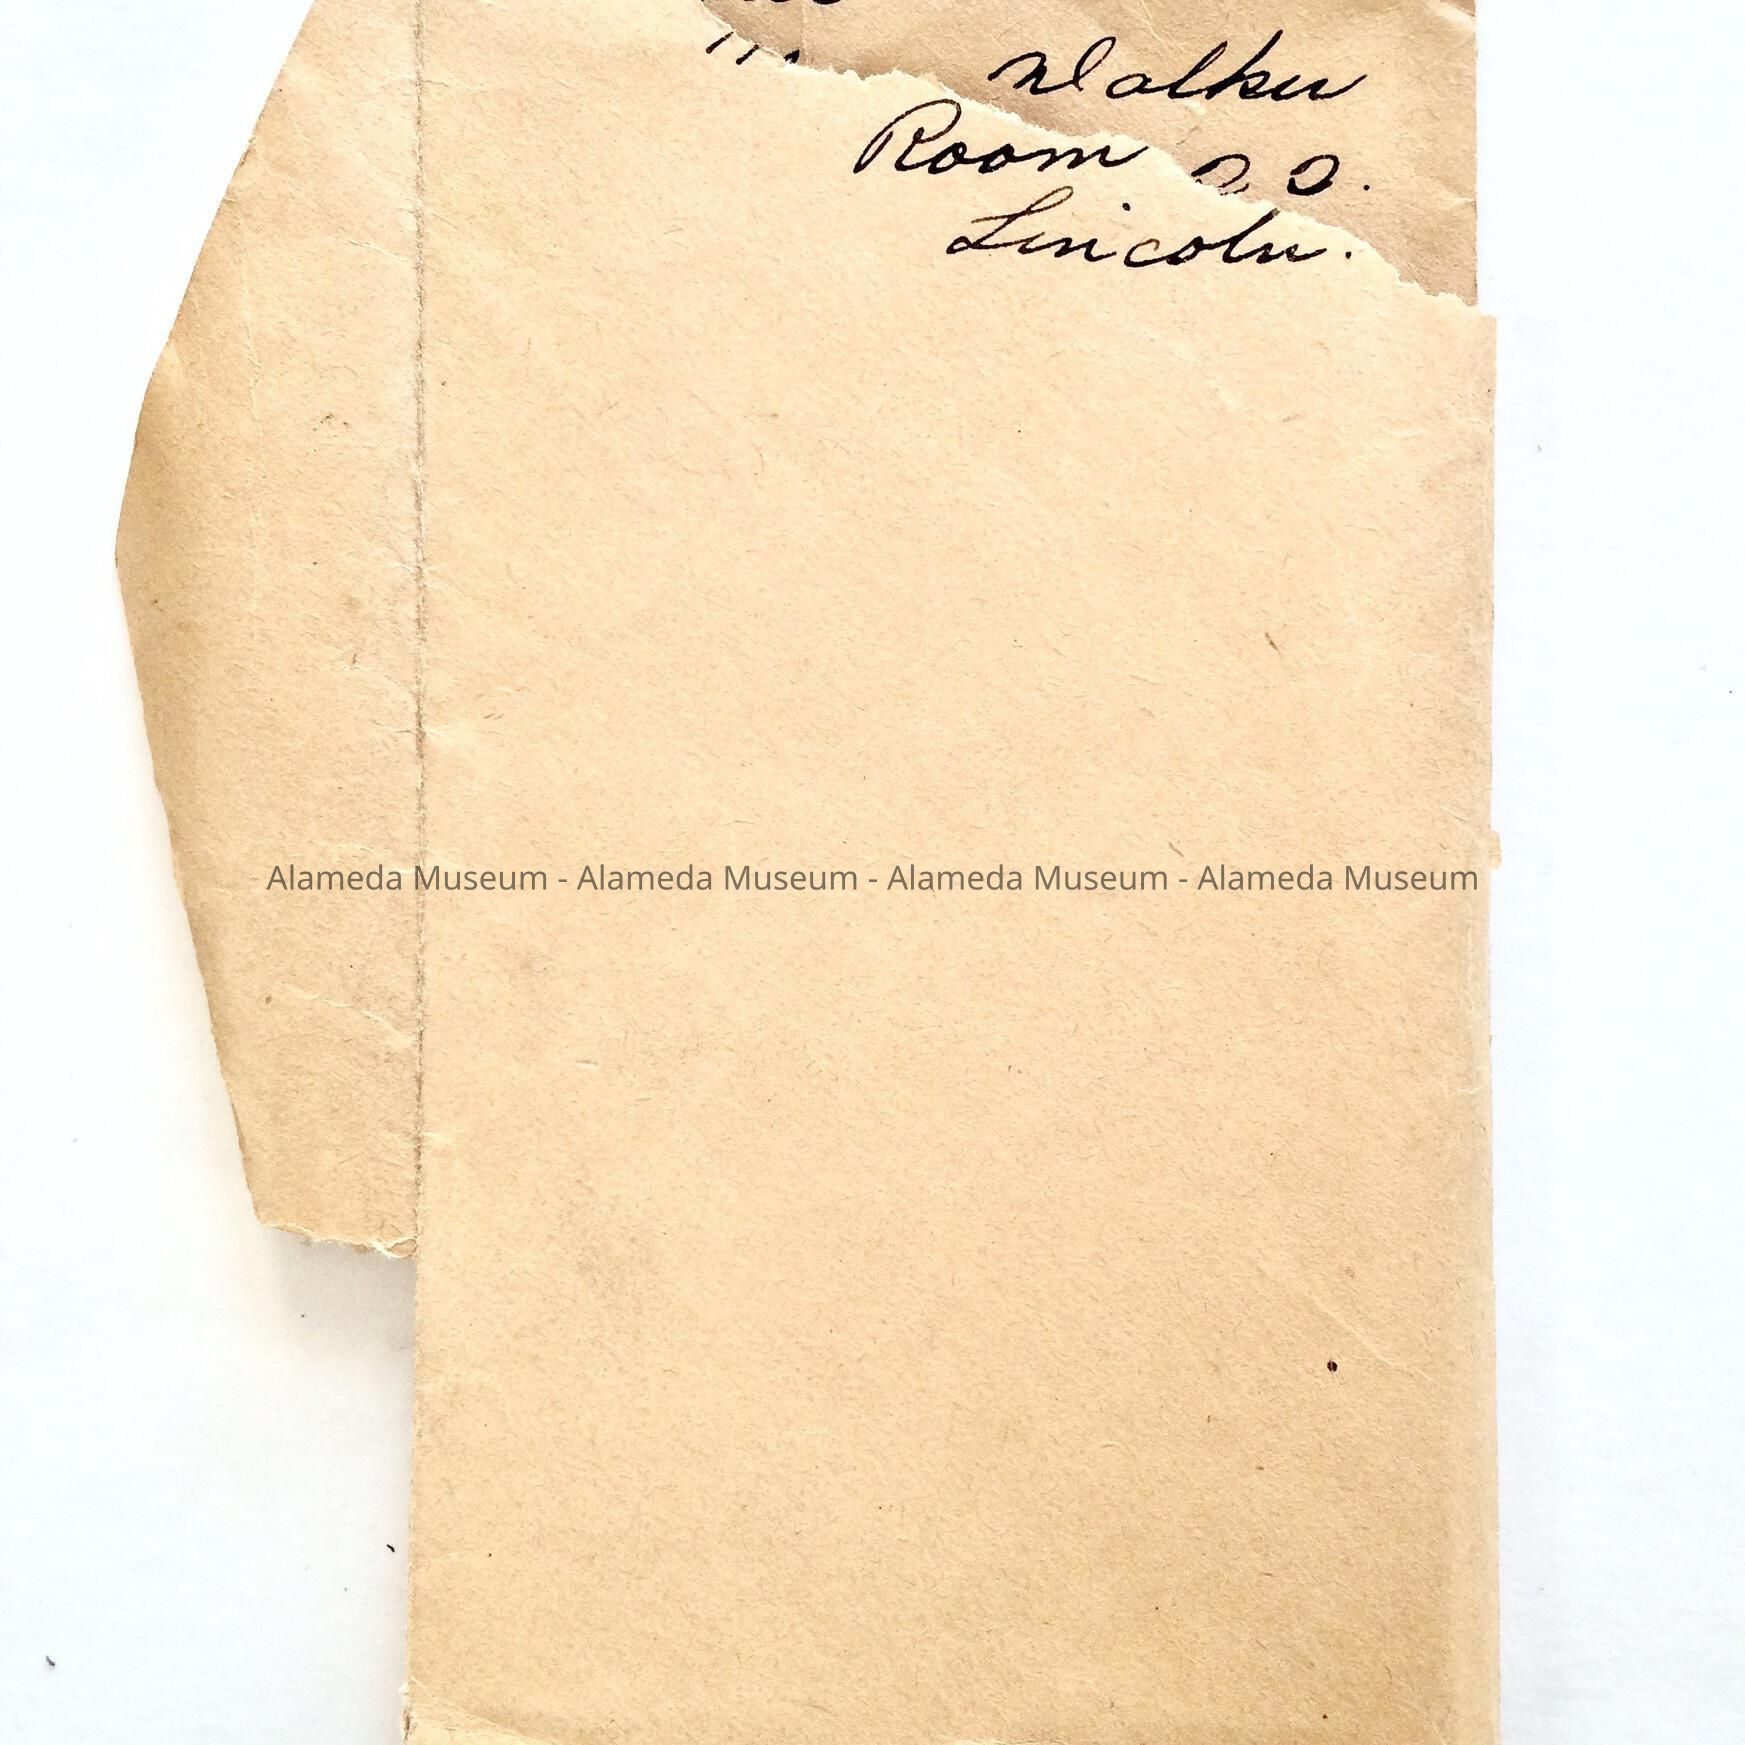 Walker
Room
Lincoln.
Alameda Museum - Alameda Museum - Alameda Museum - Alameda Museum